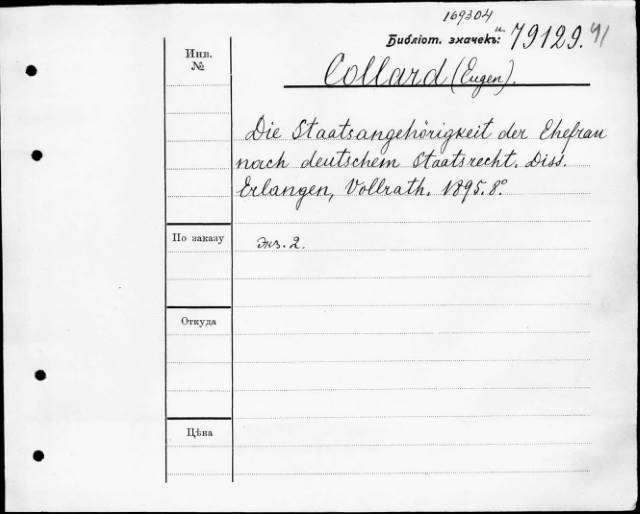 169304
Библiот. значекъ: и. 79129. 41
Инв.
№
Collard (Eugen).
Die Staatsangehörigkeit der Ehefrau
nach deutschem Staatsrecht. Diss.
Erlangen, Vollrath. 1895. 8°
По заказу
Экз. 2.
Откуда
Цѣна